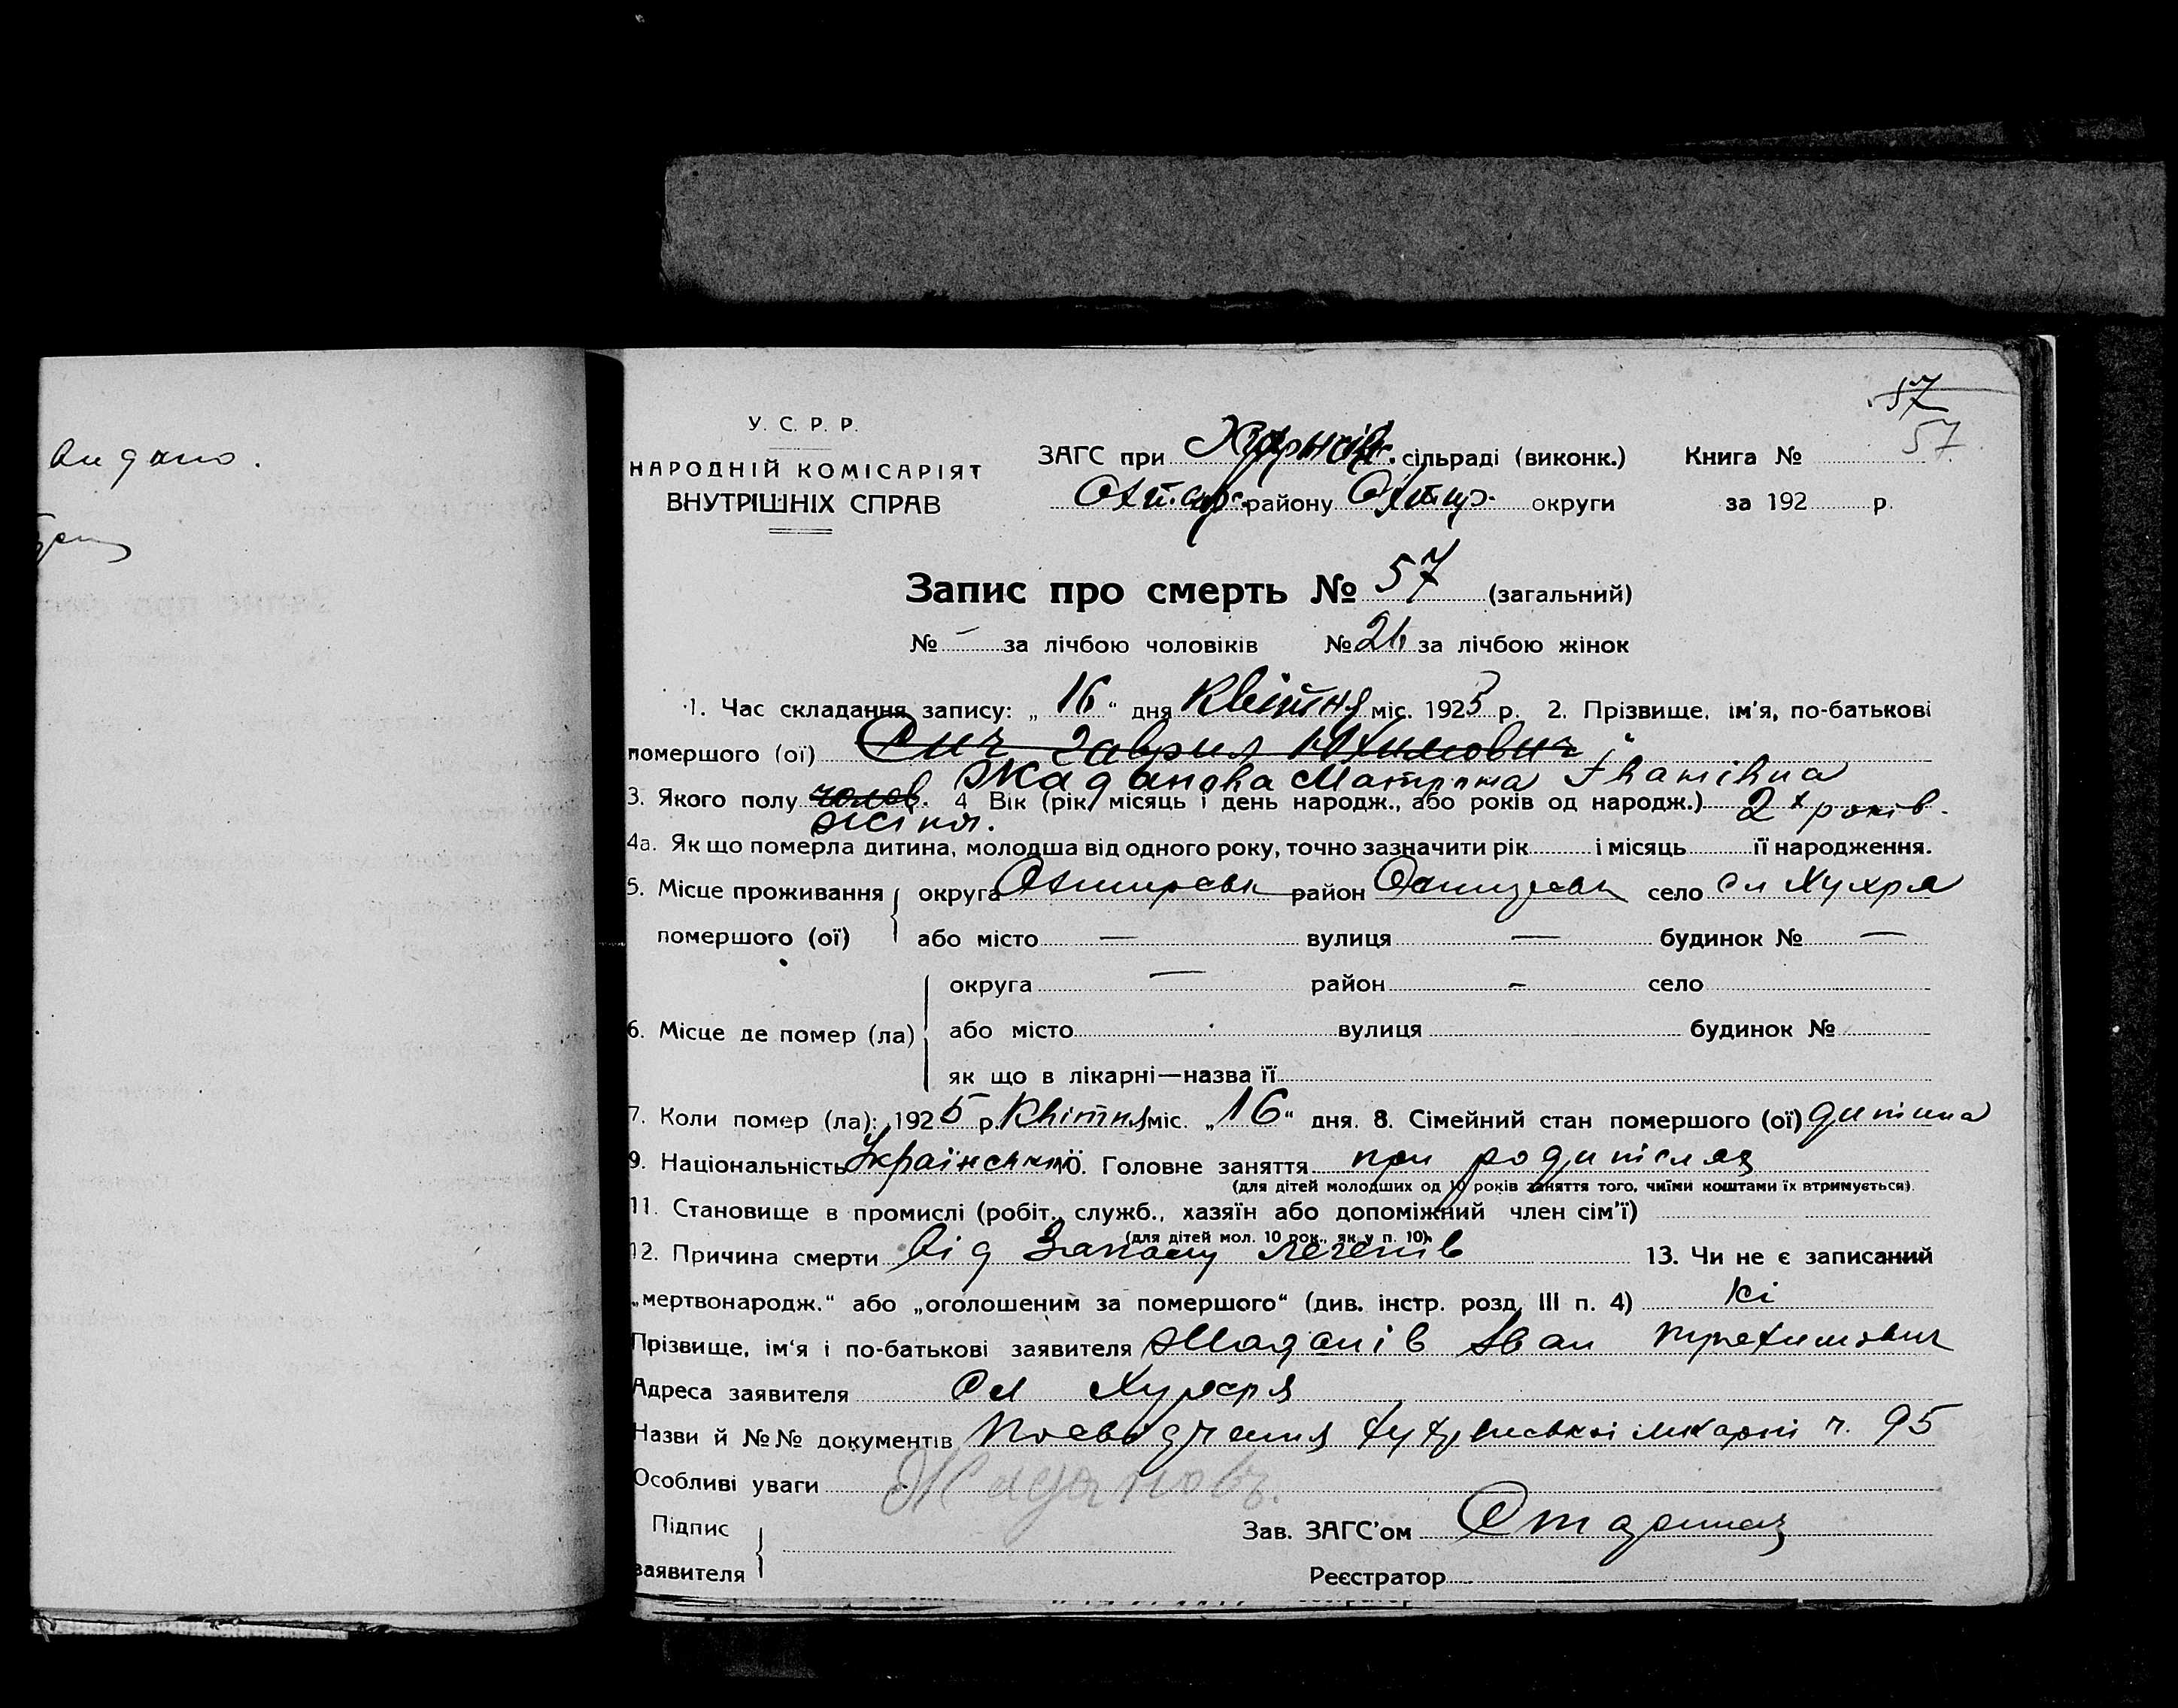 57
57
У. С. Р. Р.
НАРОДНІЙ КОМІСАРІЯТ
ВНУТРІШНІХ СПРАВ
ЗАГС при сільраді (виконк.) Книга №
Охтир. району Охтир. округи за 192 р.
видано.
Запис про смерть № 57 (загальний)
№ – за лічбою чоловіків № 26 за лічбою жінок
1. Час складання запису: „16" дня Квітня міс. 1925 р. 2. Прізвище, ім'я, по-батькові
помершого (ої) Сич Гаврил Юхимович
Жаданова Мотрона Іванівна
3. Якого полу чолов. 4 Вік (рік, місяць і день народж., або років од народж.) 2х років.
жіноч.
4а. Як що померла дитина, молодша від одного року, точно зазначити рік і місяць її народження.
5. Місце проживання округа Охтирськ район Охтирськ село сл Хухря
помершого (ої) або місто — вулиця — будинок № —
округа — район – село
6. Місце де помер (ла) або місто вулиця будинок №
як що в лікарні—назва її
7. Коли помер (ла): 1925 р. Квітня міс. „16" дня. 8. Сімейний стан помершого (ої) дитина
9. Національність Українська 10. Головне заняття при родителях
(для дітей молодших од 10 років заняття того, чиїми коштами їх втримується).
11. Становище в промислі (робіт., служб., хазяїн або допоміжний член сім'ї)
(для дітей мол. 10 рок., як у п. 10).
12. Причина смерти від Запалу легенів 13. Чи не є записаний
„мертвонародж." або „оголошеним за помершого" (див. інстр. розд. III п. 4) Ні
Прізвище, ім'я і по-батькові заявителя Жаданів Іван
Адреса заявителя Сл Хухря
Назви й №№ документів Посвідчення лікарні ч. 95
Особливі уваги Жадановъ.
Підпис
заявителя
Зав. ЗАГС'ом
Реєстратор